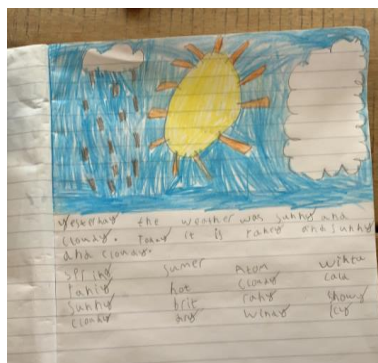 yesterday the weather was sunny and
cloudy. Today it is rainy and sunny
and cloudy.
spring sumer Atom winta
rainy hot cloudy cald
sunny brit rany showy
cloudy dry windy icy